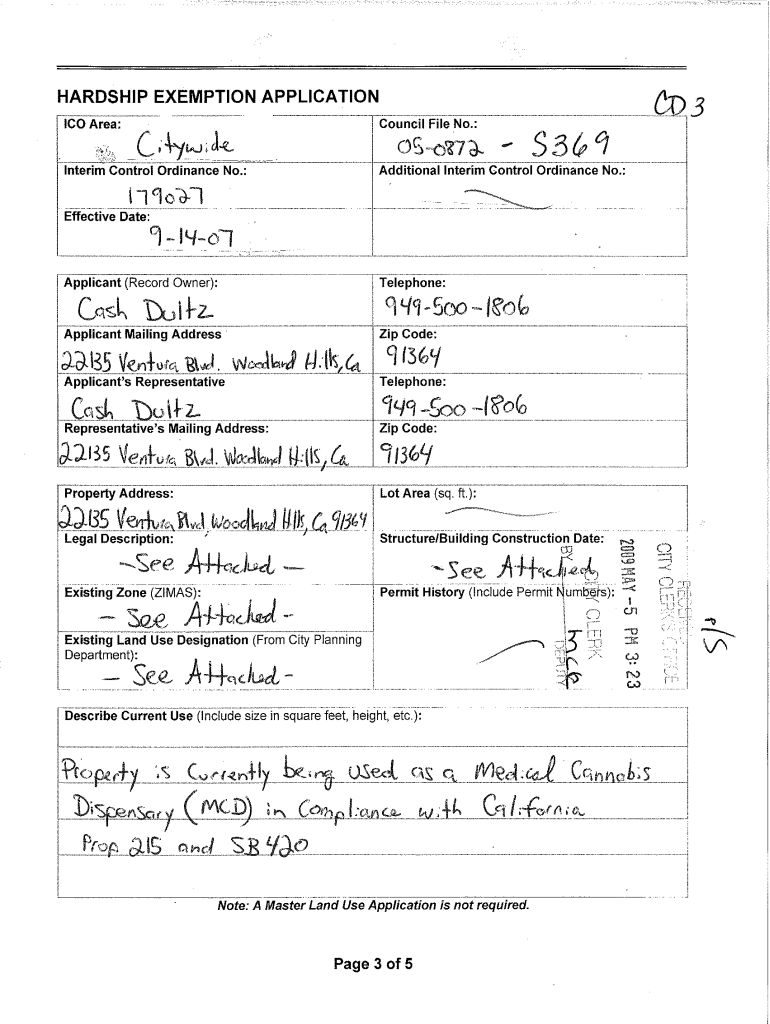 HARDSHIP EXEMPTION APPLICATION
CD 3
ICO Area:
Citywide
Council File No.:
05-0872 - S369
Interim Control Ordinance No.:
179027
Additional Interim Control Ordinance No.:
Effective Date:
9-14-07
Applicant (Record Owner):
Cash Dultz
Telephone:
949-500-1806
Applicant Mailing Address
22135 Ventura Blvd. Woodland Hills, Ca
Zip Code:
91364
Applicant's Representative
Cash Dultz
Telephone:
949-500-1806
Representative's Mailing Address:
22135 Ventura Blvd. Woodland Hills, Ca
Zip Code:
91364
Property Address:
22135 Ventura Blvd, Woodland Hills, Ca 91364
Lot Area (sq. ft.):
Legal Description:
- See Attached -
Structure/Building Construction Date:
- See Attached
Existing Zone (ZIMAS):
- See Attached -
Permit History (Include Permit Numbers):
Existing Land Use Designation (From City Planning
Department):
- See Attached -
BY
CITY CLERK
DEPUTY
2009 MAY -5 PM 3:23
RECEIVED
CITY CLERK'S OFFICE
Describe Current Use (Include size in square feet, height, etc.):
Property is Currently being used as a Medical Cannabis
Dispensary (MCD) in Compliance with California
Prop 215 and SB 420
Note: A Master Land Use Application is not required.
Page 3 of 5